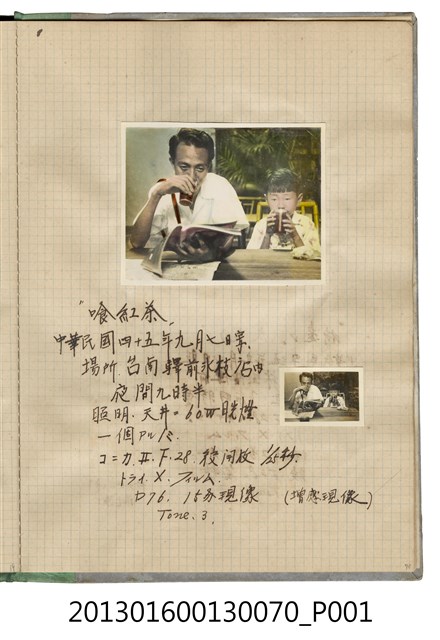 "喰紅茶"
中華民國四十五年九月七日
場所 台南驛前永枝
夜間九時半
照明. 天井. 60W
一個
コニカ.Ⅱ.F.28.
トライ.X.フィルム
D76. 15分現像 (增感現像)
Tone. 3.
201301600130070_P001